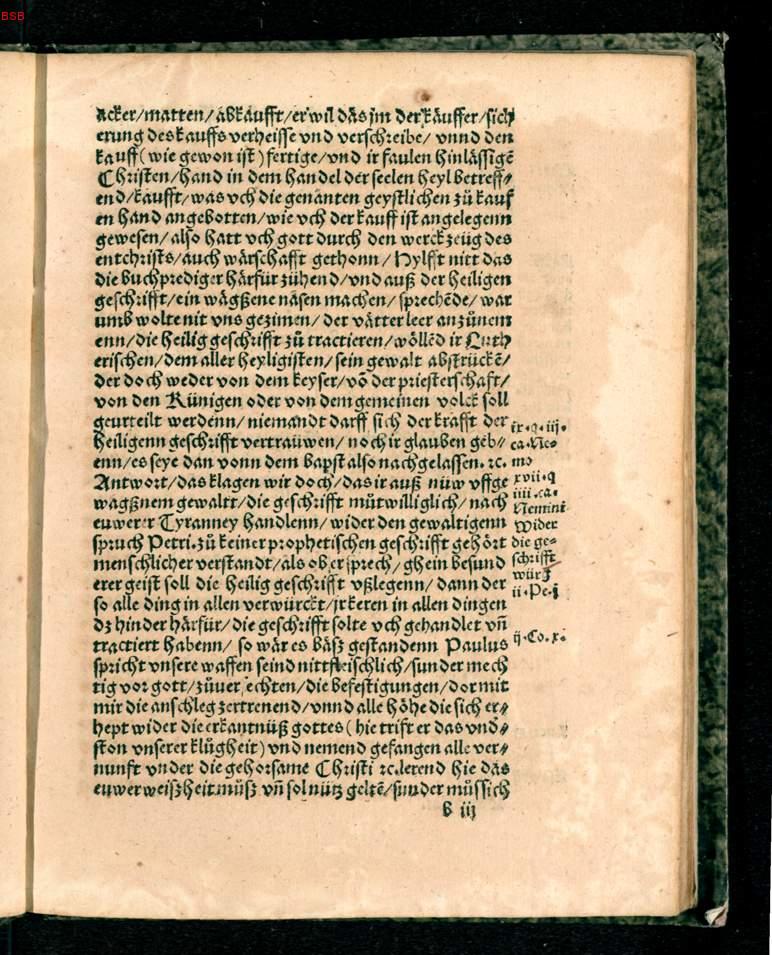 BSB
acker/matten/abkaufft/er wil dās jm der käuffer/sich
erung des kauffs verheisse vnd verschreibe/ vnnd den
kauff(wie gewon ist)fertige/vnd ir faulen hinlässigē
Christen/hand in dem handel der seelen heyl betreff⸗
end/kaufft/was vch die genanten geystlichen zů kauf
en hand angebotten/wie vch der kauff ist angelegenn
gewesen/also hatt vch gott durch den werckzeüg des
entchrists/auch wärschafft gethonn/Hylfft nitt das
die buchprediger härfür zühend/vnd auß der heiligen
geschrifft/ein wägßene nāsen machen/sprechēde/war
umb wolte nit vns gezimen/der vätter leer anzůnem
enn/die heilig geschrifft zů tractieren/wöllēd ir Luth
erischen/dem aller heyligisten/sein gewalt abstrückē/
der doch weder von dem keyser/vō der priesterschaft/
von den Künigen oder von dem gemeinen volck soll
geurteilt werdenn/niemandt darff sich der krafft der
heiligenn geschrifft vertraüwen/noch ir glauben geb⸗
enn/es seye dan vonn dem bapst also nachgelassen.ꝛc.
Antwort/das klagen wir doch/das ir auß nüw vffge
wagßnem gewaltt/die geschrifft můtwilliglich/nach
euwerer Tyranney handlenn/wider den gewaltigenn
spruch Petri.zů keiner prophetischen geschrifft gehört
menschlicher verstandt/als ob er sprech/ghein besund
erer geist soll die heilig geschrifft vßlegenn/dann der
so alle ding in allen verwürckt/jrkeren in allen dingen
dz hinder härfür/die geschrifft solte vch gehandlet vñ
tractiert habenn/ so wär es bäsz gestandenn Paulus
spricht vnsere waffen seind nitt fleischlich/sunder mech
tig vor gott/zůuer echten/die befestigungen/dormit
mir die anschleg zertrenend/vnnd alle höhe die sich er⸗
hept wider die erkantnüß gottes(hie trift er das vnd⸗
ston vnserer klůgheit)vnd nemend gefangen alle ver⸗
nunft vnder die gehorsame Christi ꝛc.lerend hie dās
euwer weißheit můsz vñ sol nütz geltē/sunder můs sich
b iij
ix.q.iij.
ca.Ne⸗
mo
xvii.q
iiii.ca.
Nemini
Wider
die ge⸗
schrifft
würꝫ
ii.Pe.j
ij.Co.x.